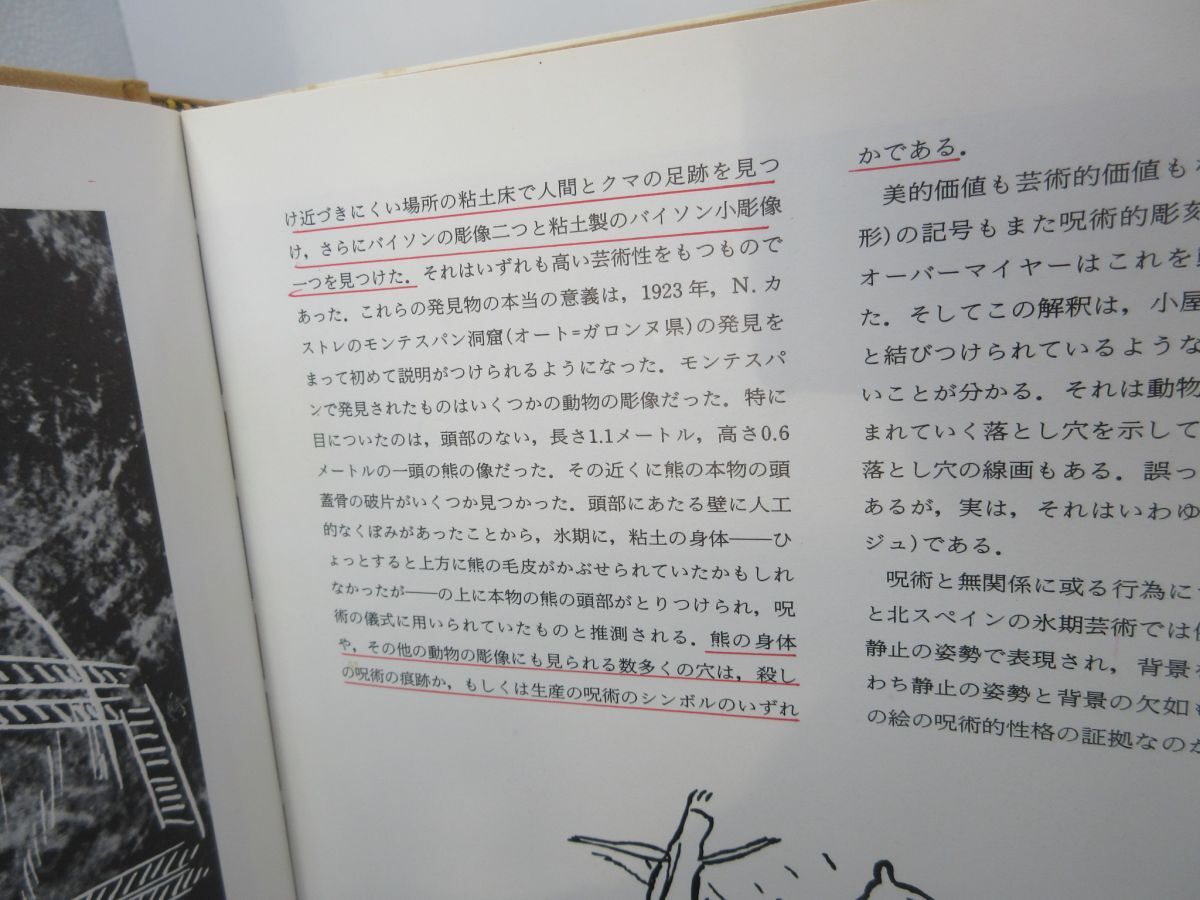 け近づきにくい場所の粘土床で人間とクマの足跡を見つ
け，さらにバイソンの彫像二つと粘土製のバイソン小彫像
一つを見つけた．それはいずれも高い芸術性をもつもので
あった．これらの発見物の本当の意義は，1923年，N.カ
ストレのモンテスパン洞窟(オート=ガロンヌ県)の発見を
まって初めて説明がつけられるようになった．モンテスパ
ンで発見されたものはいくつかの動物の彫像だった．特に
目についたのは，頭部のない，長さ1.1メートル，高さ0.6
メートルの一頭の熊の像だった．その近くに熊の本物の頭
蓋骨の破片がいくつか見つかった．頭部にあたる壁に人工
的なくぼみがあったことから，氷期に，粘土の身体――ひ
ょっとすると上方に熊の毛皮がかぶせられていたかもしれ
なかったが――の上に本物の熊の頭部がとりつけられ，呪
術の儀式に用いられていたものと推測される．熊の身体
や，その他の動物の彫像にも見られる数多くの穴は，殺し
の呪術の痕跡か，もしくは生産の呪術のシンボルのいずれ
かである．
美的価値も芸術的価値も
形)の記号もまた呪術的彫
オーバーマイヤーはこれを
た．そしてこの解釈は，小屋
と結びつけられているような
いことが分かる．それは動物
まれていく落とし穴を示して
落とし穴の線画もある．誤っ
あるが，実は，それはいわゆ
ジュ)である．
呪術と無関係に或る行為に
と北スペインの氷期芸術では
静止の姿勢で表現され，背景
わち静止の姿勢と背景の欠如
の絵の呪術的性格の証拠なのか